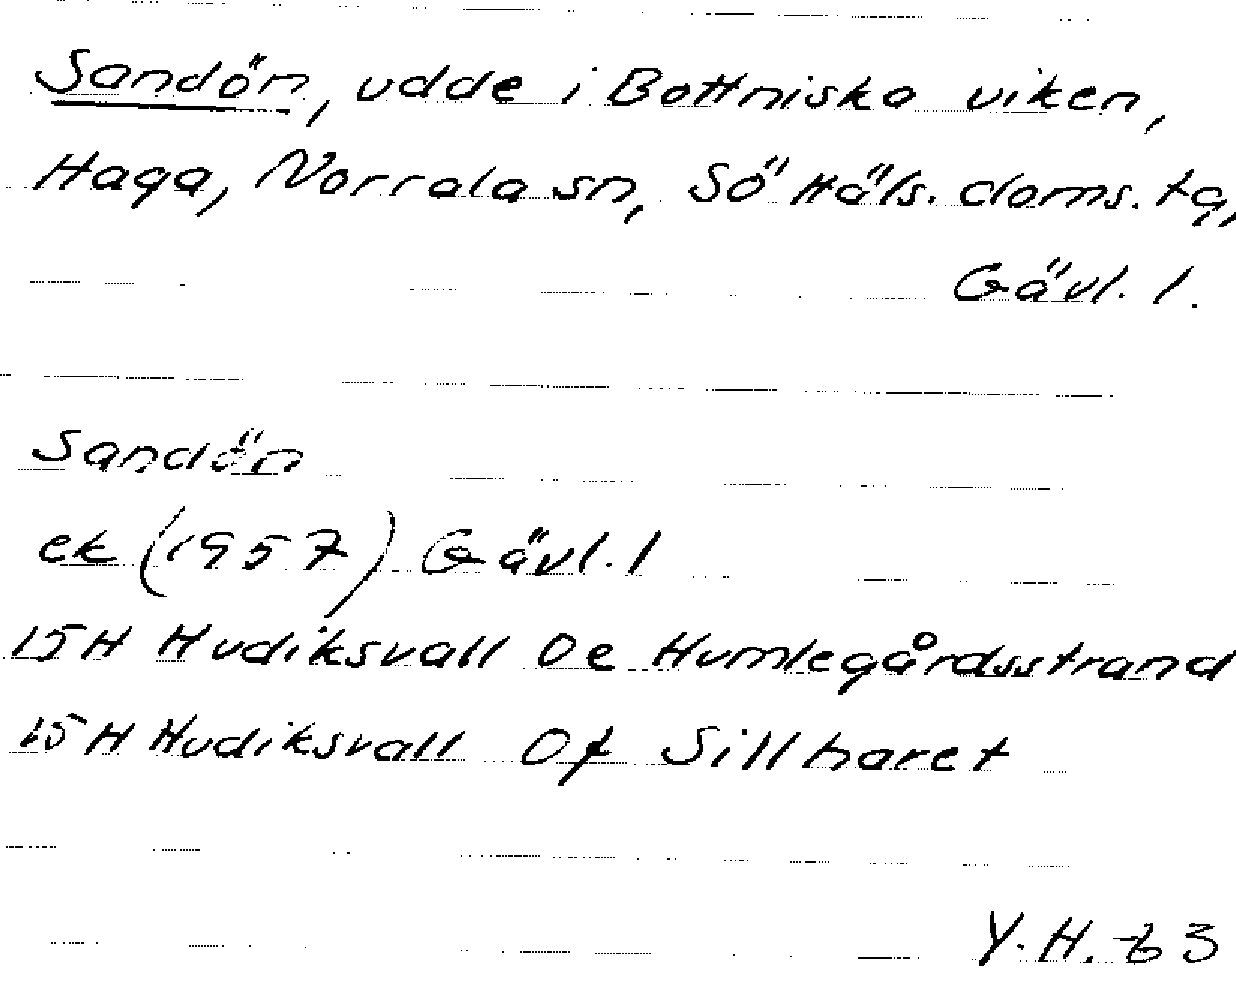 Sandön, udde i Bottniska viken,
Haga, Norrala sn, Sö Häls. doms. tg,
Gävl. l.
Sandön
ek (1957) Gävl. l
15H Hudiksvall 0e Humlegårdsstrand
15H Hudiksvall 0f Sillharet
Y. H. 63